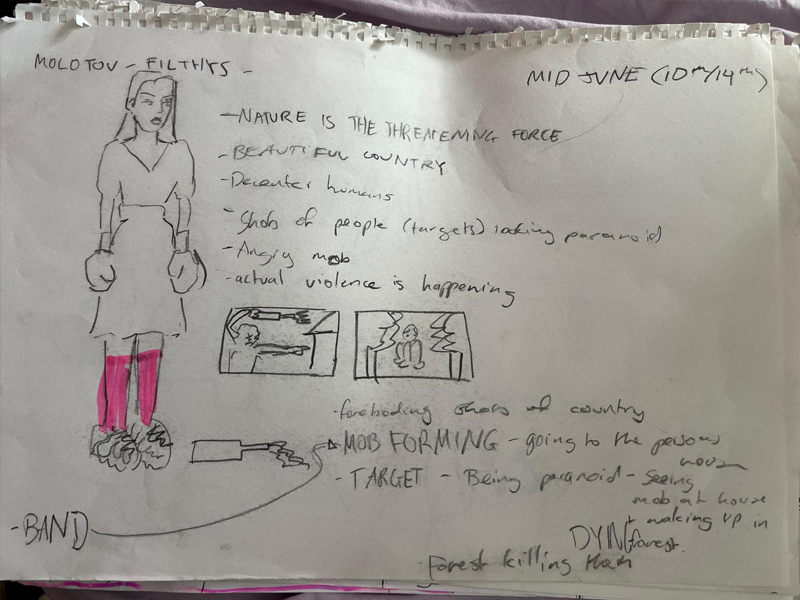 MOLOTOV - FILTHYS -
MID JUNE (10TH/14TH)
- NATURE IS THE THREATENING FORCE
- BEAUTIFUL COUNTRY
- Decenter humans
- Shots of people (targets) looking paranoid
- Angry mob
- actual violence is happening
- foreboding shots of country
MOB FORMING - going to the persons
house
- TARGET - Being paranoid - Seeing
mob at house
+ waking up in
forest.
DYING
- BAND
- Forest killing them